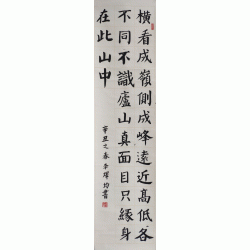 橫看成嶺側成峰遠近高低各
不同不識廬山真面目只緣身
在此山中
辛丑之春